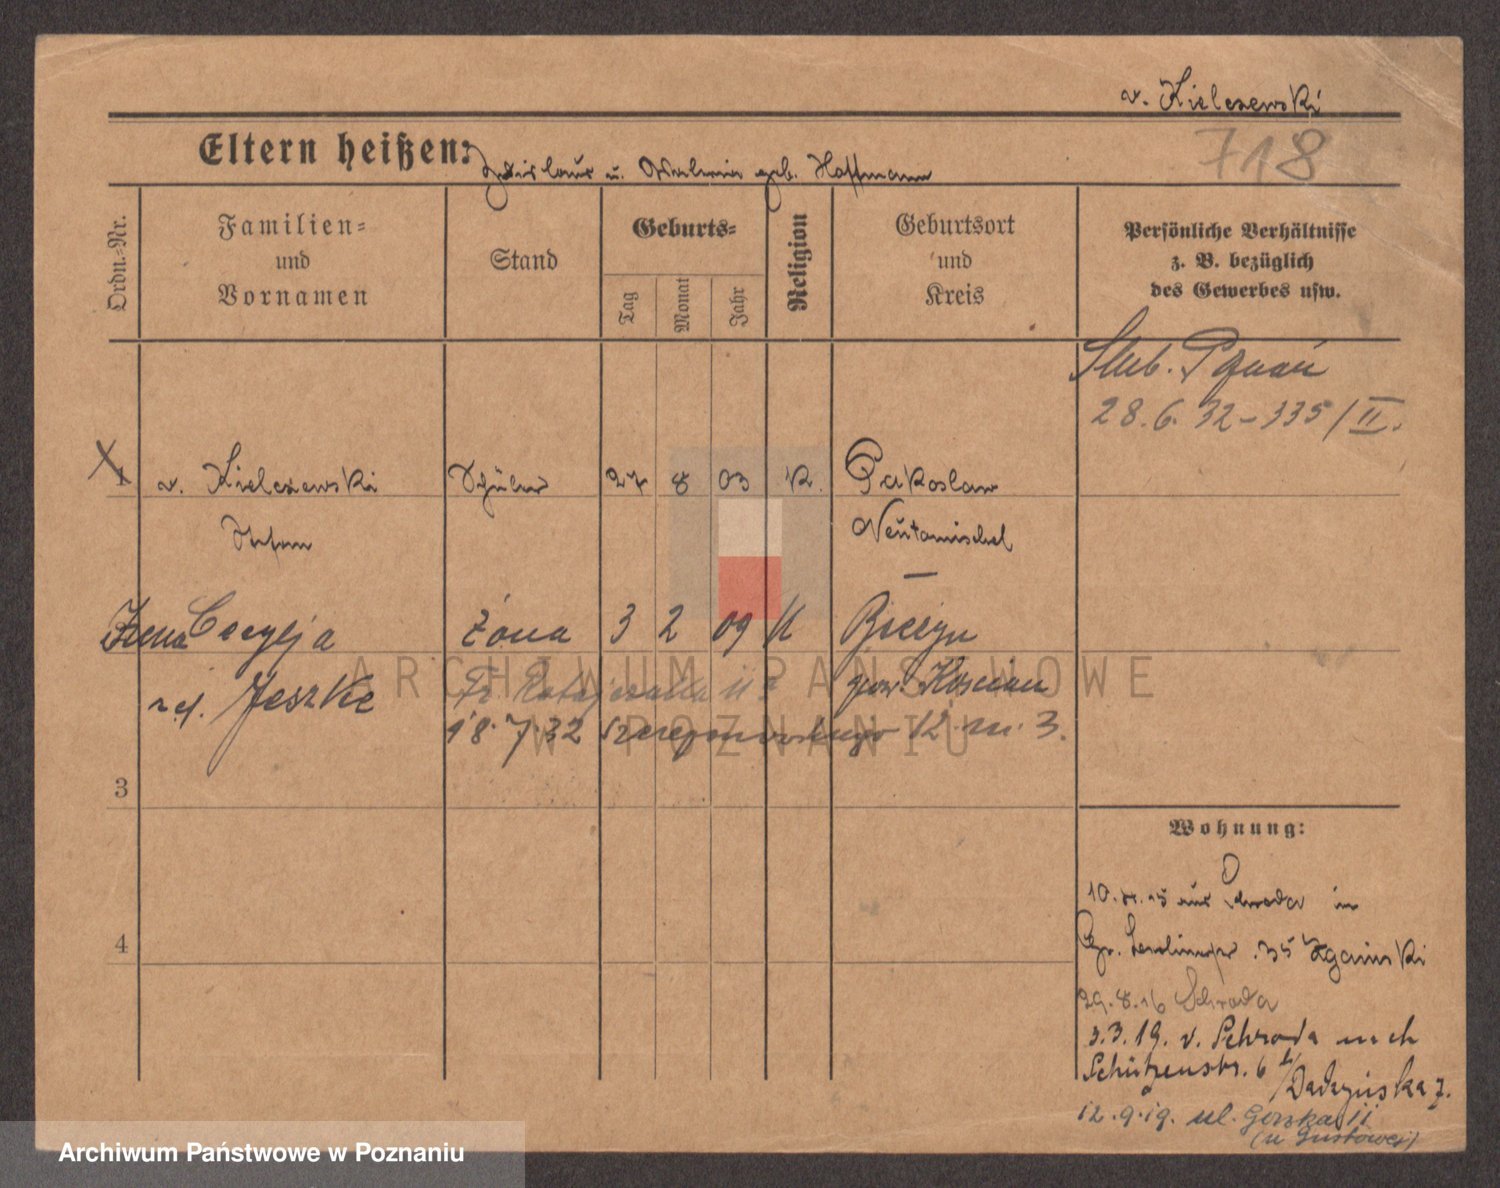 v. Kielczewski
718
Eltern heißen: u. geb. Hoffmann
Ordn.-Nr.
Familien-
und
Vornamen
Stand
Geburts-
Tag
Monat
Jahr
Religion
Geburtsort
und
Kreis
Persönliche Verhältnisse
z. B. bezüglich
des Gewerbes usw.
28.6.32-335/II.
1 v. Kielczewski Schüler 27 8 03 K. Pakoslaw
Stefan Neutomischel
Irena Cecylja żona 3 2 09 K
Jeszke pow. Kościan
18.7.32 12 m. 3.
3
4
Wohnung:
10. aus Schroda in
35 Zgainski
29.8.16 Schroda
3.3.19. v. Schroda nach
Schützenstr. 6
12.9.19. ul. Górska 11
ARCHIWUM PAŃSTWOWE
W POZNANIU
Archiwum Państwowe w Poznaniu